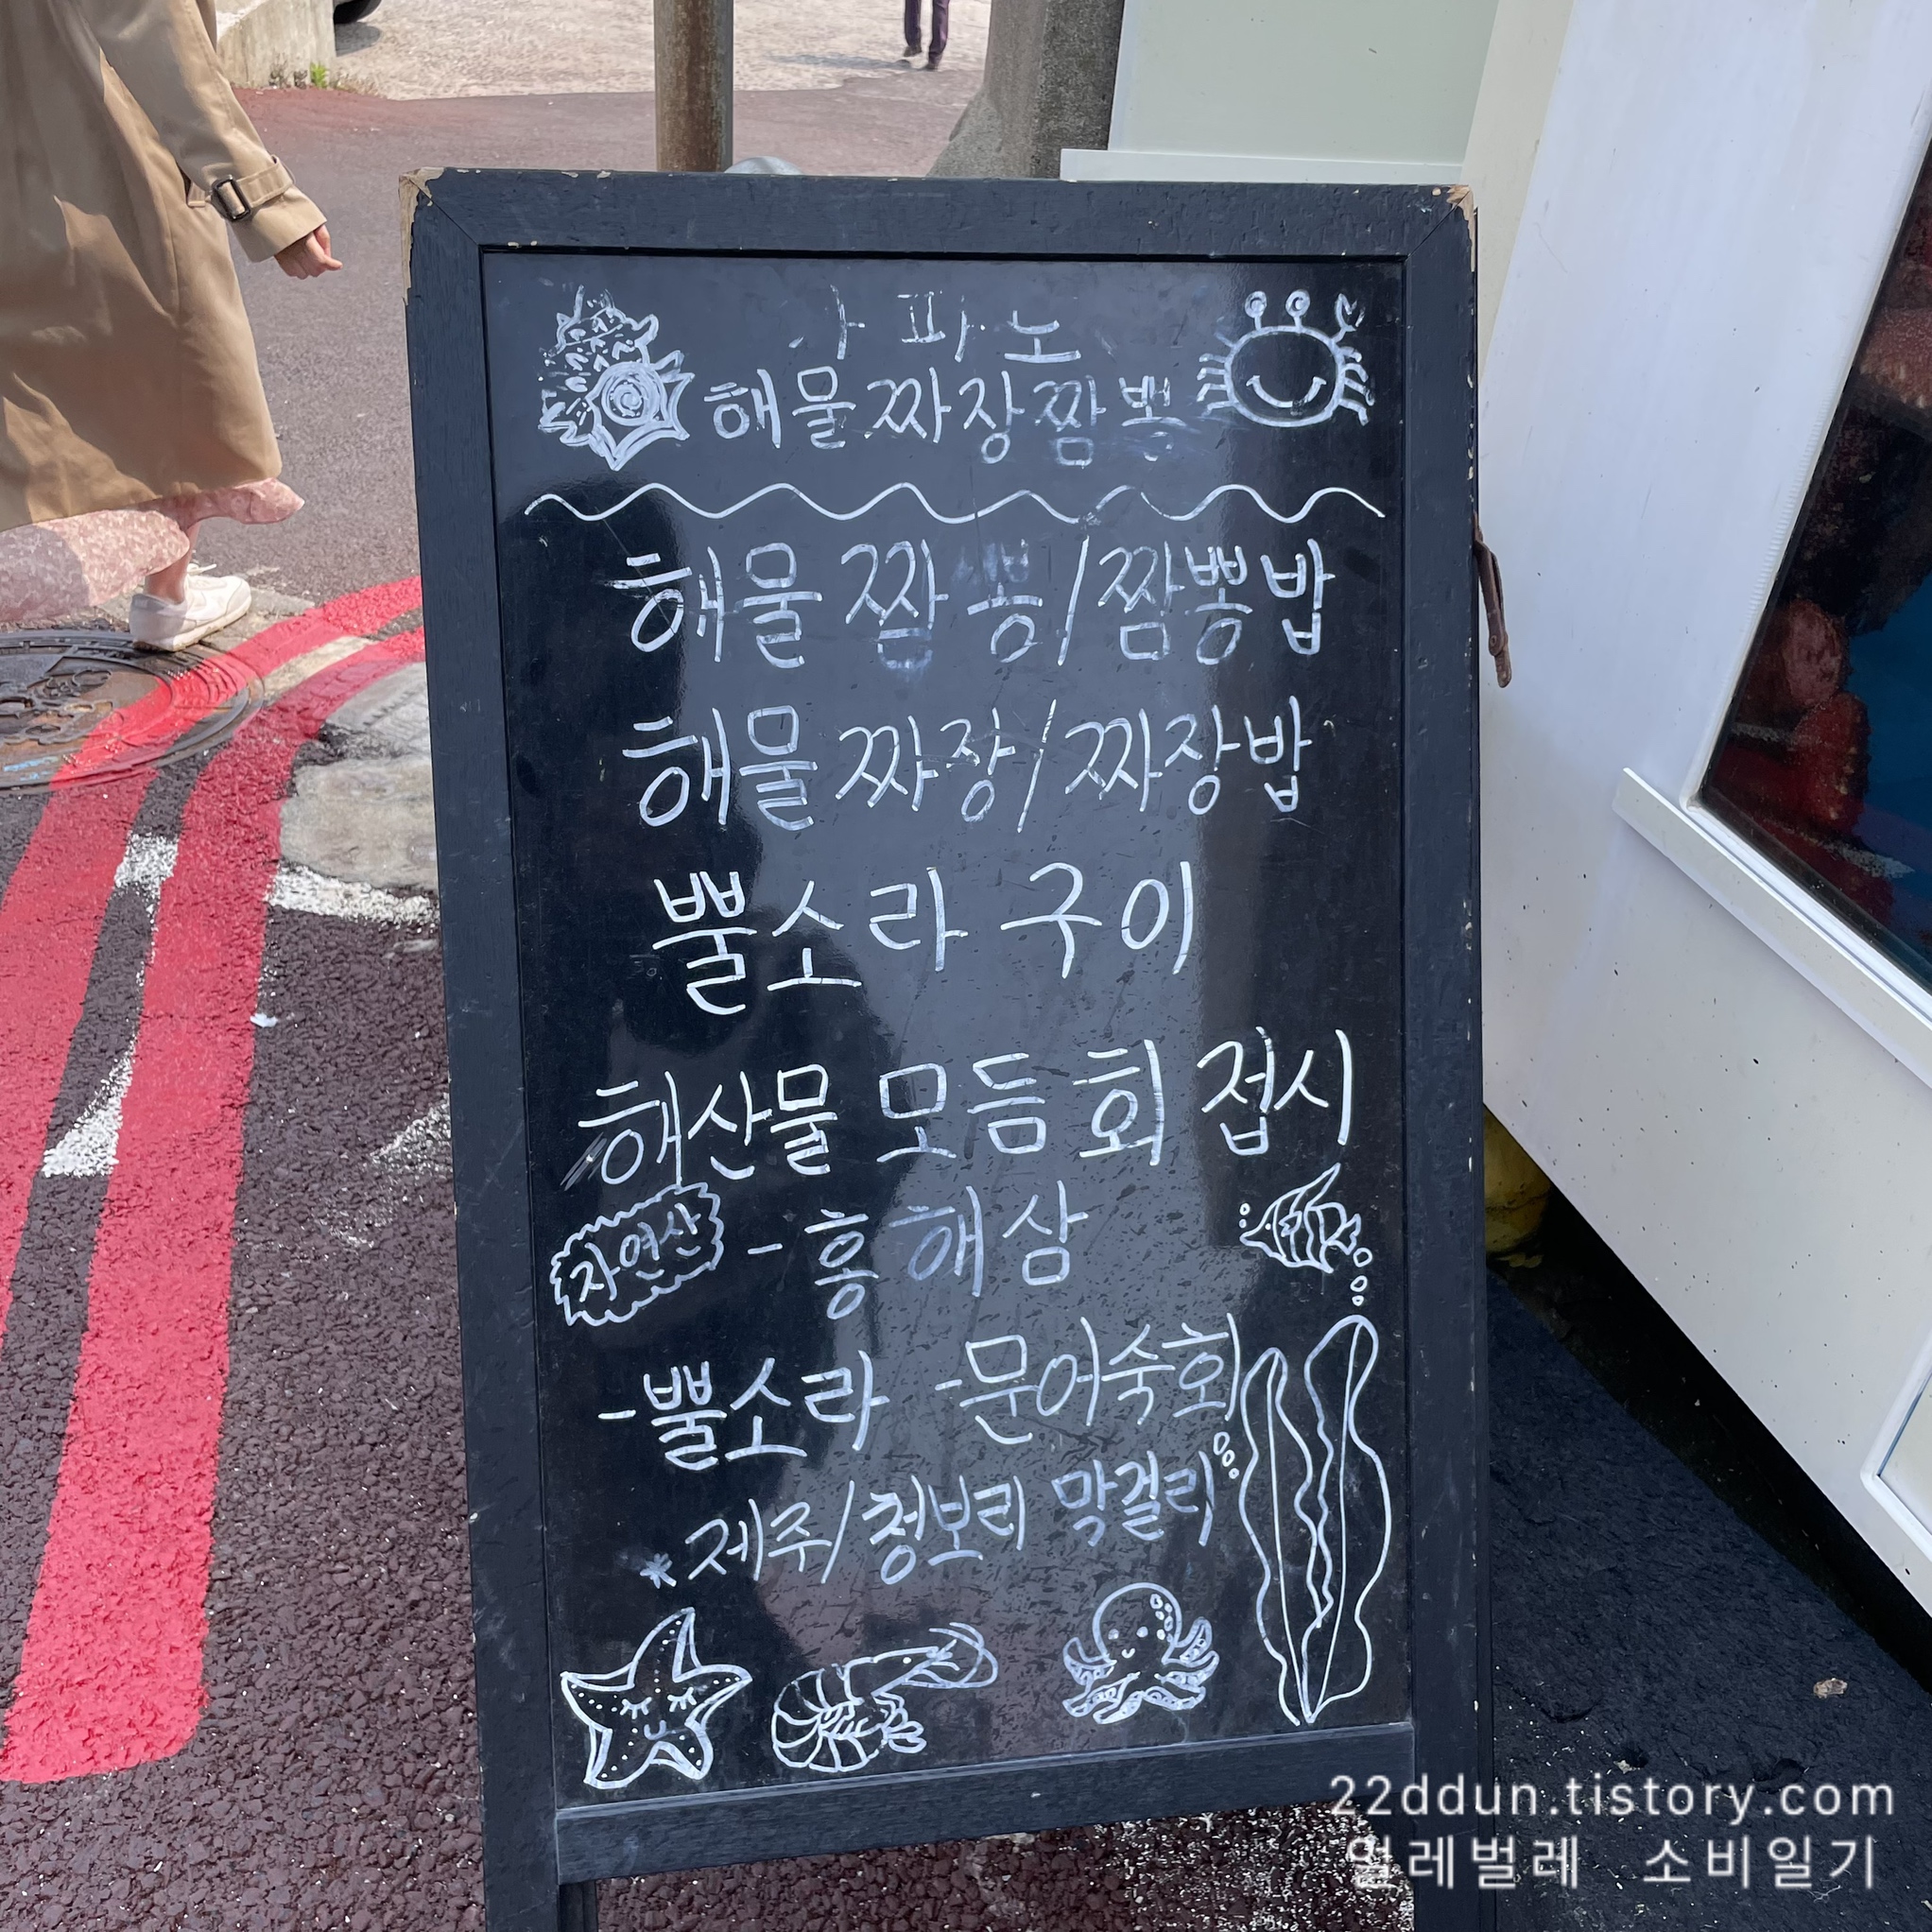 해물짜장짬뽕
해물 짬뽕/짬뽕밥
해물 짜장/짜장밥
뿔소라 구이
해산물 모듬 회 접시
자연산 -홍해삼
-뿔소라 -문어숙회
*제주/청보리 막걸리
22ddun.tistory.com
얼레벌레 소비일기